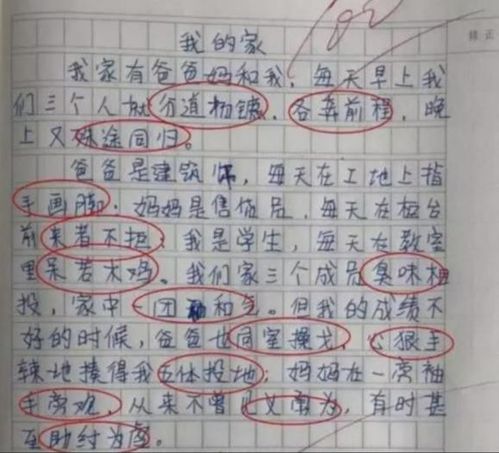 我的家
我家有爸爸妈和我，每天早上我
们三个人就分道杨镳，各奔前程，晚
上又殊途同归。
爸爸是建筑师，每天在工地上指
手画脚，妈妈是售货员，每天在柜台
前来者不拒，我是学生，每天在教室
里呆若木鸡。我们家三个成员臭味相
投，家中一团和气。但我的成绩不
好的时候，爸爸也同室操戈，心狠手
辣地揍得我五体投地；妈妈在一旁袖
手旁观，从来不曾见义勇为，有时甚
至助纣为虐。